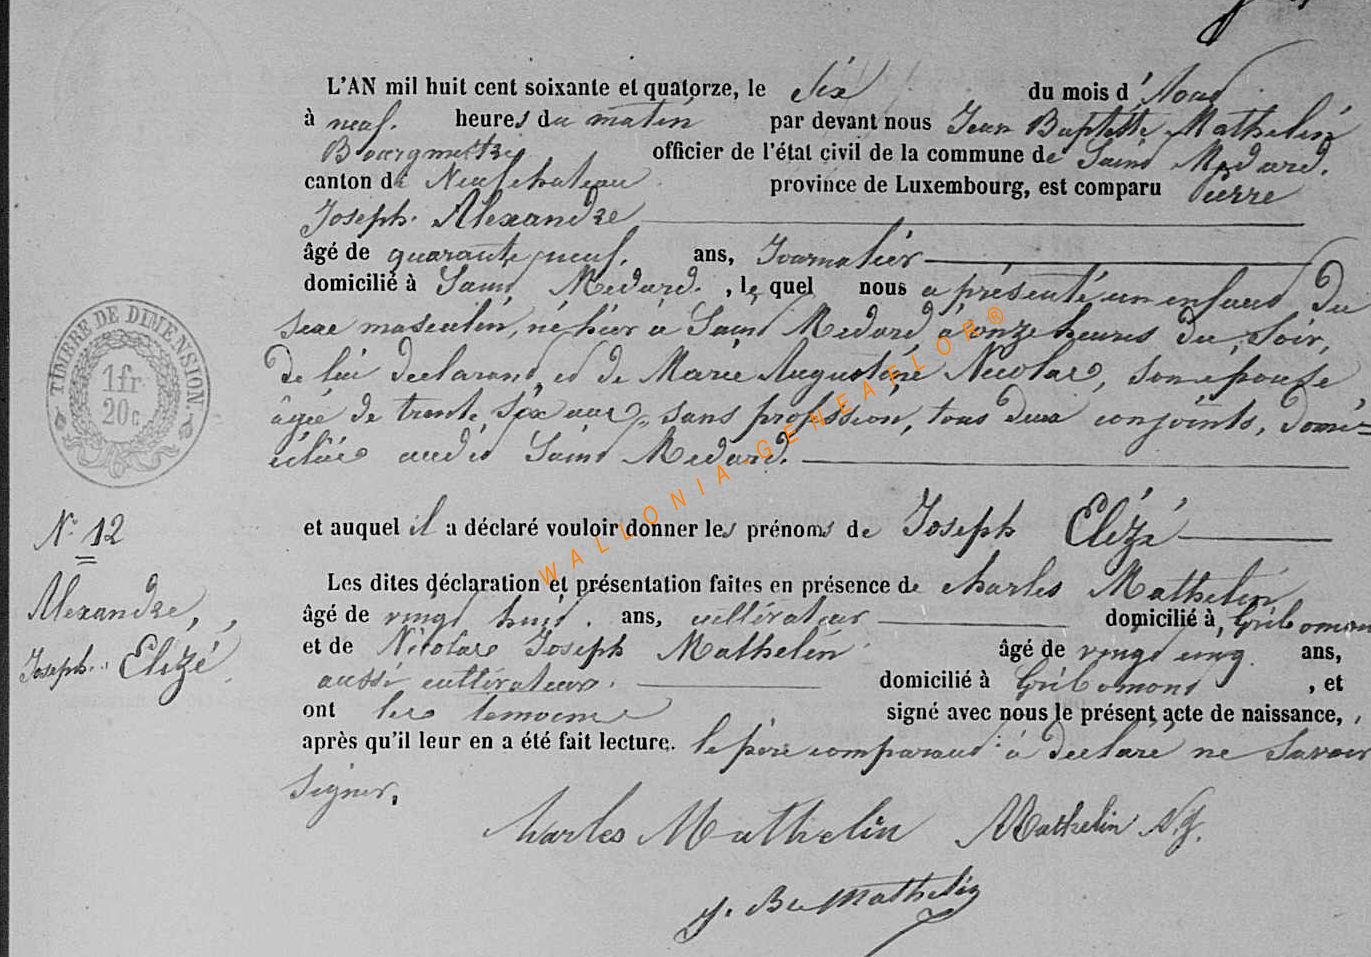 L'AN mil huit cent soixante et quatorze, le six du mois d'Aout
à neuf heures du matin par devant nous Jean Baptiste Mathelin
Bourgmestre officier de l'état civil de la commune de Saint Médard.
canton de Neufchateau province de Luxembourg, est comparu Pierre
Joseph Alexandre
âgé de quarante neuf ans, Journalier
domicilié à Saint Médard, lequel nous a présenté un enfant du
sexe masculin, né hier à Saint Médard à onze heures du soir,
de lui déclarant, et de Marie Augustine Nicolas, son épouse
âgée de trente six ans, sans profession, tous deux conjoints, domi=
ciliés audit Saint Médard.
et auquel il a déclaré vouloir donner les prénoms de Joseph Elizé
N° 12
Alexandre,
Joseph Elizé
Les dites déclaration et présentation faites en présence de Charles Mathelin
âgé de vingt huit ans, cultivateur domicilié à Gribomont
et de Nicolas Joseph Mathelin âgé de vingt cinq ans,
aussi cultivateur domicilié à Gribomont, et
ont les témoins signé avec nous le présent acte de naissance,
après qu'il leur en a été fait lecture. le père comparant à déclaré ne savoir
signer.
Charles Mathelin Mathelin N J.
J. Bte Mathelin
TIMBRE DE DIMENSION.
1fr
20c
WALLONIA-GENEAFLOR®